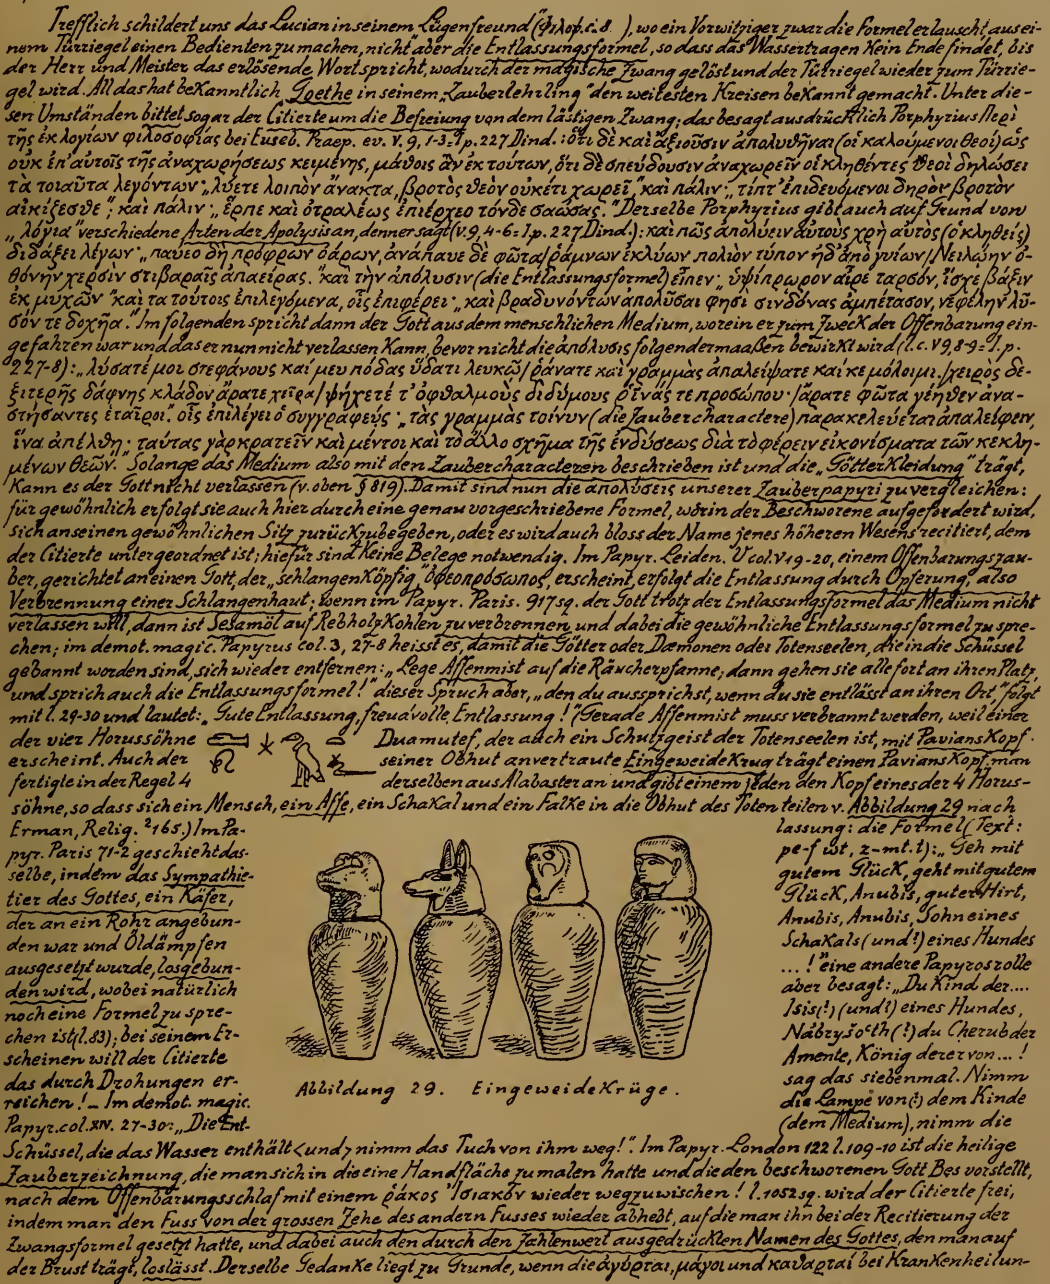 Trefflich schildert uns das Lucian in seinem „Lügenfreund" (Φιλοψ. c. 8 ), wo ein Vorwitziger zwar die Formel erlauscht, aus ei-
nem Türriegel einen Bedienten zu machen, nicht aber die Entlassungsformel, so dass das Wassertragen kein Ende findet, bis
der Herr und Meister das erlösende Wort spricht, wodurch der magische Zwang gelöst und der Türriegel wieder zum Türrie-
gel wird. All das hat bekanntlich Goethe in seinem „Zauberlehrling" den weitesten Kreisen bekannt gemacht. Unter die-
sen Umständen bittet sogar der Citierte um die Befreiung von dem lästigen Zwang; das besagt ausdrücklich Porphyrius Περὶ
τῆς ἐκ λογίων φιλοσοφίας bei Euseb. Praep. ev. V. 9, 1-3 = I p. 227 Dind.: ὅτι δὲ καὶ ἀξιοῦσιν ἀπολυθῆναι (οἱ καλούμενοι θεοί) ὡς
οὐκ ἐπ' αὐτοῖς τῆς ἀναχωρήσεως κειμένης, μάθοις ἂν ἐκ τούτων, ὅτι δὲ σπεύδουσιν ἀναχωρεῖν οἱ κληθέντες θεοὶ δηλώσει
τὰ τοιαῦτα λεγόντων· „λύετε λοιπὸν ἄνακτα, βροτὸς θεὸν οὐκέτι χωρεῖ", καὶ πάλιν· „τίπτ' ἐπιδευόμενοι δηρὸν βροτὸν
αἰκίζεσθε"; καὶ πάλιν· „ἕρπε καὶ ὀτραλέως ἐπιέρχεο τόνδε σαώσας." Derselbe Porphyrius gibt auch auf Grund von
„λόγια" verschiedene Arten der Apolysis an, denn er sagt (V. 9, 4-6 = I p. 227 Dind.): καὶ πῶς ἀπολύειν αὐτοὺς χρὴ αὐτὸς (ὁ κληθεὶς)
διδάξει λέγων· „παύεο δὴ πρόφρων ὀάρων, ἀνάπαυε δὲ φῶτα/ῥάμνων ἐκλύων πολιὸν τύπον ἠδ' ἀπὸ γυίων/Νειλῴην ὀ-
θόνην χερσὶν στιβαραῖς ἀπαείρας. " καὶ τὴν ἀπόλυσιν (die Entlassungsformel) εἶπεν· „ὑψίπρωρον αἶρε ταρσόν, ἴσχε βάξιν
ἐκ μυχῶν" καὶ τὰ τούτοις ἐπιλεγόμενα, οἷς ἐπιφέρει· „καὶ βραδυνόντων ἀπολῦσαι φησι σινδόνας ἀμπέτασον, νεφέλην λῦ-
σόν τε δοχῆα." Im folgenden spricht dann der Gott aus dem menschlichen Medium, worein er zum Zweck der Offenbarung ein-
gefahren war und das er nun nicht verlassen kann, bevor nicht die ἀπόλυσις folgendermaaßen bewirkt wird (l. c. V 9, 8-9 = I. p.
227-8): „λύσατέ μοι στεφάνους καί μευ πόδας ὕδατι λευκῷ/ῥάνατε καὶ γραμμὰς ἀπαλείψατε καί κε μόλοιμι./χειρὸς δε-
ξιτερῆς δάφνης κλάδον ἄρατε χεῖρα/ψήχετέ τ' ὀφθαλμοὺς διδύμους ῥῖνάς τε προσώπου·/ἄρατε φῶτα γέηθεν ἀνα-
στήσαντες ἑταῖροι." οἷς ἐπιλέγει ὁ συγγραφεύς· „τὰς γραμμὰς τοίνυν (die Zaubercharactere) παρακελεύεται ἀπαλείφειν,
ἵνα ἀπέλθῃ· ταύτας γὰρ κρατεῖν καὶ μέντοι καὶ τὸ ἄλλο σχῆμα τῆς ἐνδύσεως διὰ τὸ φέρειν εἰκονίσματα τῶν κεκλη-
μένων θεῶν." Solange das Medium also mit den Zaubercharacteren beschrieben ist und die „Götterkleidung" trägt,
kann es der Gott nicht verlassen (v. oben § 819). Damit sind nun die ἀπολύσεις unserer Zauberpapyri zu vergleichen:
für gewöhnlich erfolgt sie auch hier durch eine genau vorgeschriebene Formel, worin der Beschworene aufgefordert wird,
sich an seinen gewöhnlichen Sitz zurückzubegeben, oder es wird auch bloss der Name jenes höheren Wesens recitiert, dem
der Citierte untergeordnet ist; hiefür sind keine Belege notwendig. Im Papyr. Leiden. V col. V 19-20, einem Offenbarungszau-
ber, gerichtet an einen Gott, der „schlangenköpfig" ὀφεοπρόσωπος, erscheint, erfolgt die Entlassung durch Opferung, also
Verbrennung einer Schlangenhaut; wenn im Papyr. Paris. 917 sq. der Gott trotz der Entlassungsformel das Medium nicht
verlassen will, dann ist Sesamöl auf Rebholzkohlen zu verbrennen und dabei die gewöhnliche Entlassungsformel zu spre-
chen; im demot. magic. Papyrus col. 3, 27-8 heisst es, damit die Götter oder Dæmonen oder Totenseelen, die in die Schüssel
gebannt worden sind, sich wieder entfernen: „Lege Affenmist auf die Räucherpfanne; dann gehen sie alle fort an ihren Platz,
und sprich auch die Entlassungsformel!" dieser Spruch aber, „den du aussprichst, wenn du sie entlässt an ihren Ort" folgt
mit l. 29-30 und lautet: „Gute Entlassung, freudvolle Entlassung!" (Gerade Affenmist muss verbrannt werden, weil einer
der vier Horussöhne Duamutef, der auch ein Schutzgeist der Totenseelen ist, mit Pavianskopf
erscheint. Auch der seiner Obhut anvertraute Eingeweidekrug trägt einen Pavianskopf. man
fertigte in der Regel 4 derselben aus Alabaster an und gibt einem jeden den Kopf eines der 4 Horus-
söhne, so dass sich ein Mensch, ein Affe, ein Schakal und ein Falke in die Obhut des Toten teilen v. Abbildung 29 nach
Erman, Relig. ²165.) Im Pa-
pyr. Paris 71-2 geschieht das-
selbe, indem das Sympathie-
tier des Gottes, ein Käfer,
der an ein Rohr angebun-
den war und Öldämpfen
ausgesetzt wurde, losgebun-
den wird, wobei natürlich
noch eine Formel zu spre-
chen ist (l. 83); bei seinem Er-
scheinen will der Citierte
das durch Drohungen er-
reichen! – Im demot. magic.
Papyr. col. XIV. 27-30: „Die Ent-
lassung: die Formel (Text:
pe-f wt, z-mt.t): „Geh mit
gutem Glück, geht mit gutem
Glück, Anubis, guter Hirt,
Anubis, Anubis, Sohn eines
Schakals (und!) eines Hundes
...!" eine andere Papyrosrolle
aber besagt: „Du Kind der....
Isis(!) (und!) eines Hundes,
Nabryšoth (!) du Cherub der
Amente, König derer von ...!
sag das siebenmal. Nimm
die Lampe von(!) dem Kinde
(dem Medium), nimm die
Abbildung 29. Eingeweidekrüge.
Schüssel, die das Wasser enthält <und> nimm das Tuch von ihm weg!" Im Papyr. London 122 l. 109-10 ist die heilige
Zauberzeichnung, die man sich in die eine Handfläche zu malen hatte und die den beschworenen Gott Bes vorstellt,
nach dem Offenbarungsschlaf mit einem ῥάκος Ἰσιακόν wieder wegzuwischen! l. 1052 sq. wird der Citierte frei,
indem man den Fuss von der grossen Zehe des andern Fusses wieder abhebt, auf die man ihn bei der Recitierung der
Zwangsformel gesetzt hatte, und dabei auch den durch den Zahlenwert ausgedrückten Namen des Gottes, den man auf
der Brust trägt, loslässt. Derselbe Gedanke liegt zu Grunde, wenn die ἀγύρται, μάγοι und καθαρταί bei Krankenheilun-